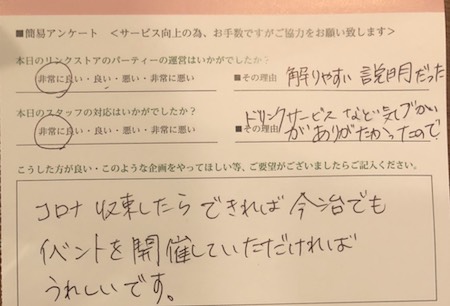 ■簡易アンケート　＜サービス向上の為、お手数ですがご協力をお願い致します＞
本日のリンクストアのパーティーの運営はいかがでしたか？
非常に良い・良い・悪い・非常に悪い
■その理由 解りやすい説明だった
本日のスタッフの対応はいかがでしたか？
非常に良い・良い・悪い・非常に悪い
■その理由 ドリンクサービスなど気づかい
がありがたかったので
こうした方が良い・このような企画をやってほしい等、ご要望がございましたらご記入ください。
コロナ収束したらできれば今治でも
イベントを開催していただければ
うれしいです。